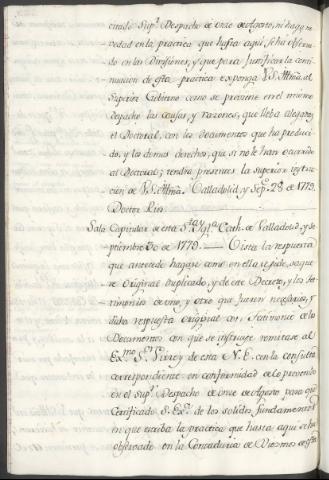 citado Sup.r Despacho de once de Agosto, ni haga no-
vedad en la practica que hasta aqui se há observa-
do en las Divisiones; y que para Justificar la conti-
nuacion de esta practica exponga V.S. Illma. al
Superior Gobierno como se previene en el mismo
despacho las causas, y razones, que lleba alegadas
el Doctoral, con los Documentos que ha produci-
do, y los demas derechos, que si no le han ocurrido
al Doctoral; tendra presentes la superior instruc-
cion de V.S. Illma. Valladolid y Sep.e 28 de 1779.
Doctor Rio
Sala Capitular de esta S.ta Ygl.a Cath. de Valladolid, y Se-
ptiembre 30 de 1779. Vista la respuesta
que antecede hagase como en ella se pide, saque-
se Original duplicado, y de este Decreto, y los Tes-
timonios de uno, y otro que fueren necesarios, y
dicha respuesta Original con Testimonio de los
Documentos con que se instruye remitase al
Ex.mo S.or Virrey de esta N.E. con la Consulta
correspondiente en conformidad de lo prevenido
en el sup.r Despacho de once de Agosto para que
Certificado S. Ex.a de los solidos fundamentos
en que estriba la practica que hasta aqui se ha
observado en la Contaduria de Diezmos de esta